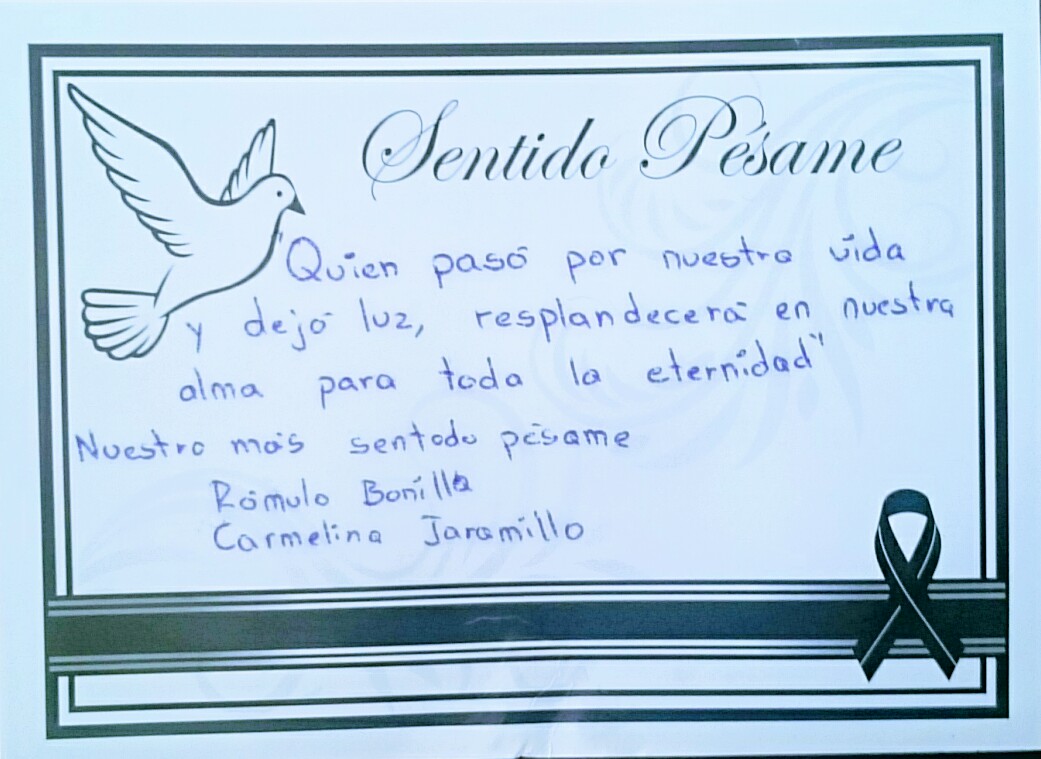 Sentido Pésame
"Quien pasó por nuestra vida
y dejó luz, resplandecerá en nuestra
alma para toda la eternidad"
Nuestro más sentodo pésame
Rómulo Bonilla
Carmelina Jaramillo